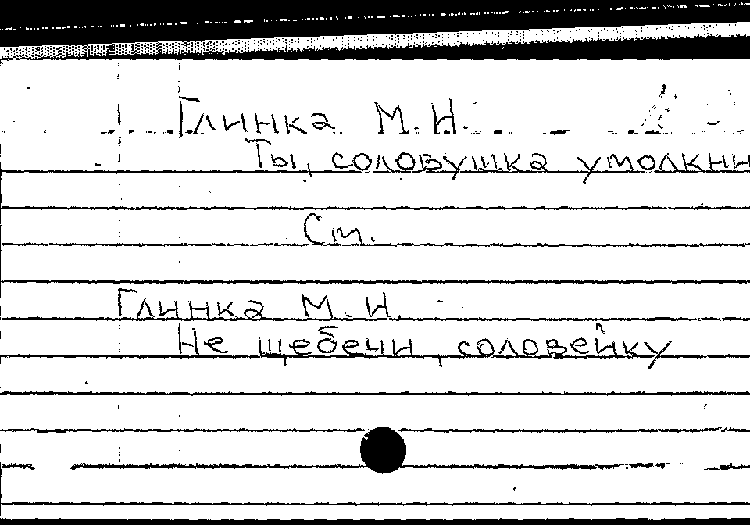 Глинка М.И.
Ты, соловушка умолкни
См.
Глинка М.И.
Не щебечи, соловейку